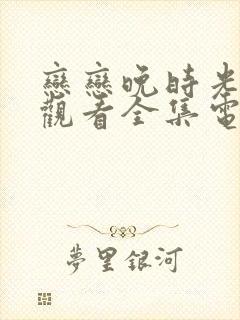 戀戀晚時光
觀看全集電
夢里銀河